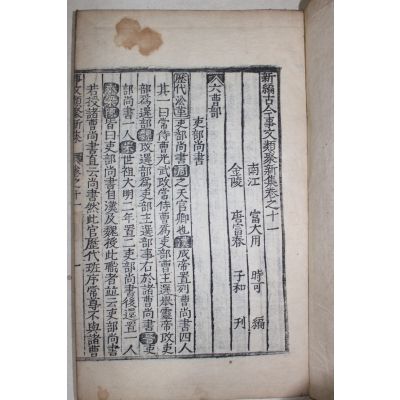 新編古今事文類聚新集卷之十一
南江 富大用 時可 編
金陵 唐富春 子和 刊
六曹部
吏部尚書
歷代沿革吏部尚書周之天官卿也漢成帝置列曹尚書四人
其一曰常侍曹光武改常侍曹爲吏部曹主選舉靈帝改吏
部爲選部魏改選部爲吏部主選部事右於諸曹尚書晉吏
部尚書一人宋世祖大明二年置二吏部尚書後還置一人
齊梁陳皆曰吏部尚書自漢及魏授此職者並云吏部尚書
若授諸曹尚書直云尚書然此官歷代班序常尊不與諸曹
事文類聚新集 卷之十一